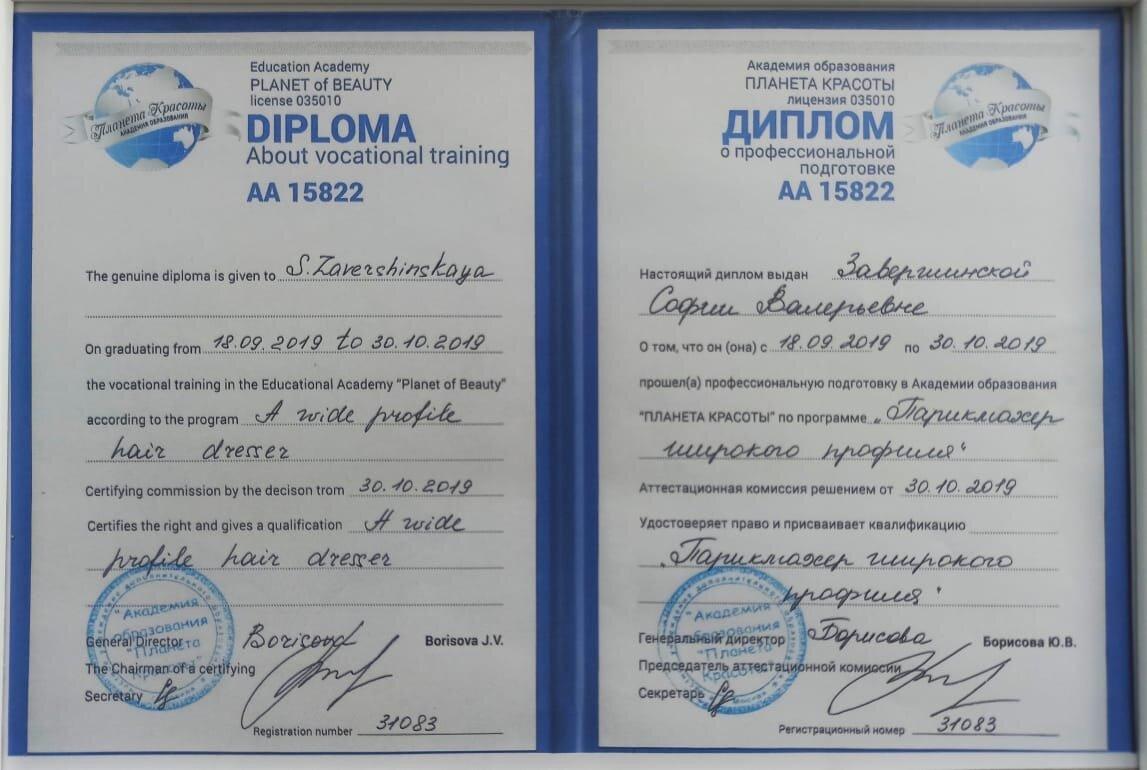 Планета Красоты
АКАДЕМИЯ ОБРАЗОВАНИЯ
Education Academy
PLANET of BEAUTY
license 035010
DIPLOMA
About vocational training
AA 15822
The genuine diploma is given to S. Zavershinskaya
On graduating from 18.09.2019 to 30.10.2019
the vocational training in the Educational Academy "Planet of Beauty"
according to the program A wide profile
hair dresser
Certifying commission by the decison trom 30.10.2019
Certifies the right and gives a qualification A wide
profile hair dresser
"Академия
образования
"Планета
Красоты"
General Director Borisova Borisova J.V.
The Chairman of a certifying
Secretary
Registration number 31083
Академия образования
ПЛАНЕТА КРАСОТЫ
лицензия 035010
ДИПЛОМ
о профессиональной
подготовке
АА 15822
Планета Красоты
АКАДЕМИЯ ОБРАЗОВАНИЯ
Настоящий диплом выдан Завершинской
Софии Валерьевне
О том, что он (она) с 18.09.2019 по 30.10.2019
прошел(а) профессиональную подготовку в Академии образования
"ПЛАНЕТА КРАСОТЫ" по программе „Парикмахер
широкого профиля"
Аттестационная комиссия решением от 30.10.2019
Удостоверяет право и присваивает квалификацию
„Парикмахер широкого
профиля"
"Академия
образования
"Планета
Красоты"
Генеральный директор Борисова Борисова Ю.В.
Председатель аттестационной комиссии
Секретарь
Регистрационный номер 31083